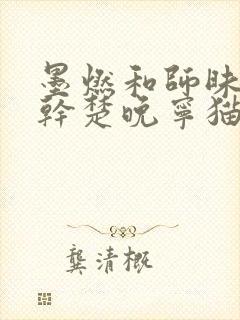 墨燃和師昧
幹楚晚寧猫
龔清概